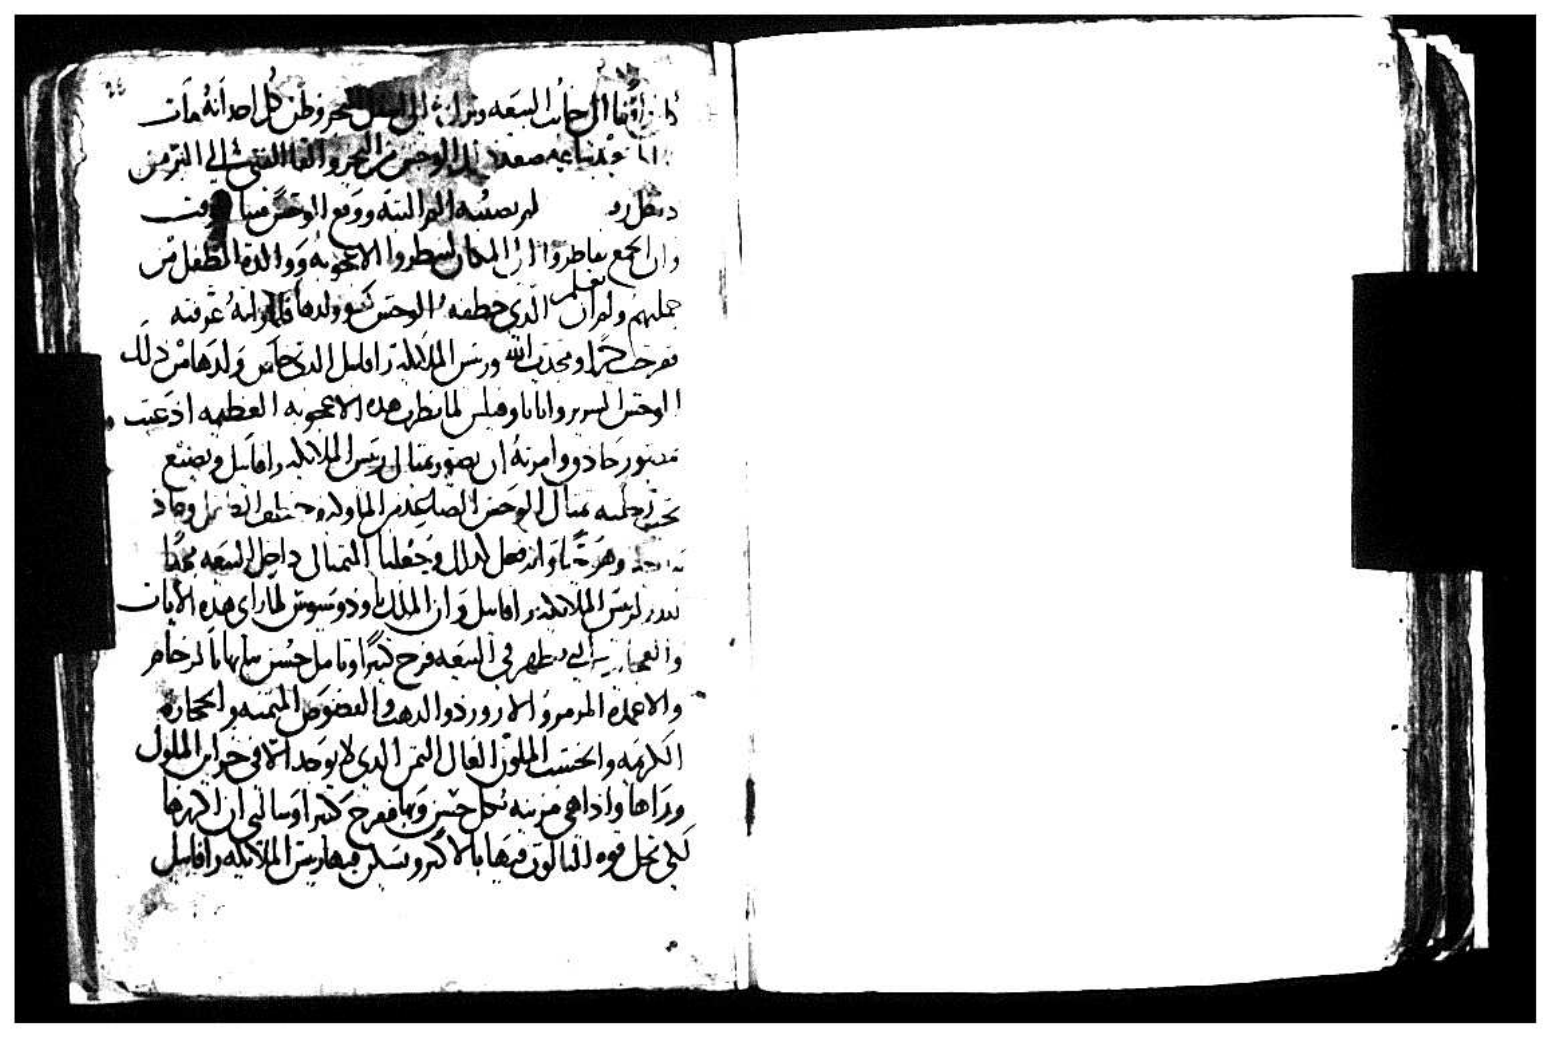 واقفا الى جانب البيعه ونزل الى اسفل البحر وظن كل احد انه مات
ساعه صعد ذلك الوحش من البحر والقا الفتى الى البر من
لم يصيبه الم البته ووقع الوحش ميتا
وان الجمع تقاطروا الى المكان لينظروا الاعجوبه ووالدة الطفل من
جملتهم ولم تعلم ان الذي خطفه الوحش هو ولدها فلما راته عرفته
ففرحت كثيرا ومجدت الله وريس الملايكه رافاييل الذي خلص ولدها من ذلك
الوحش الشرير وانا تاوفيلس لما نظرت هذه الاعجوبه العظيمه ادعيت
مصور حاذق وامرته ان يصور تمثال ريس الملايكه رافاييل ويصنع
تحت رجليه تمثال الوحش الصاعد من الما
وانه فعل كذلك وجعلنا التمثال داخل البيعه مجدا
لريس الملايكه رافاييل وان الملك تاودوسيوس لما راى هذه الايات
والعجايب التي تظهر في البيعه فرح كثيرا وتامل حسن بنايها بالرخام
والاعمده المرمر والازورد والدهب والفصوص المثمنه والحجاره
الكريمه والخشب الملون الغالي الثمن الذي لا يوجد الا في خزاين الملوك
وراها واذا هي مزينه بكل حسن وبها ففرح كثيرا وسالني ان اكرزها
لكي تحل قوه الثالوث فيها بالاكثر ويسكن فيها ريس الملايكه رافاييل